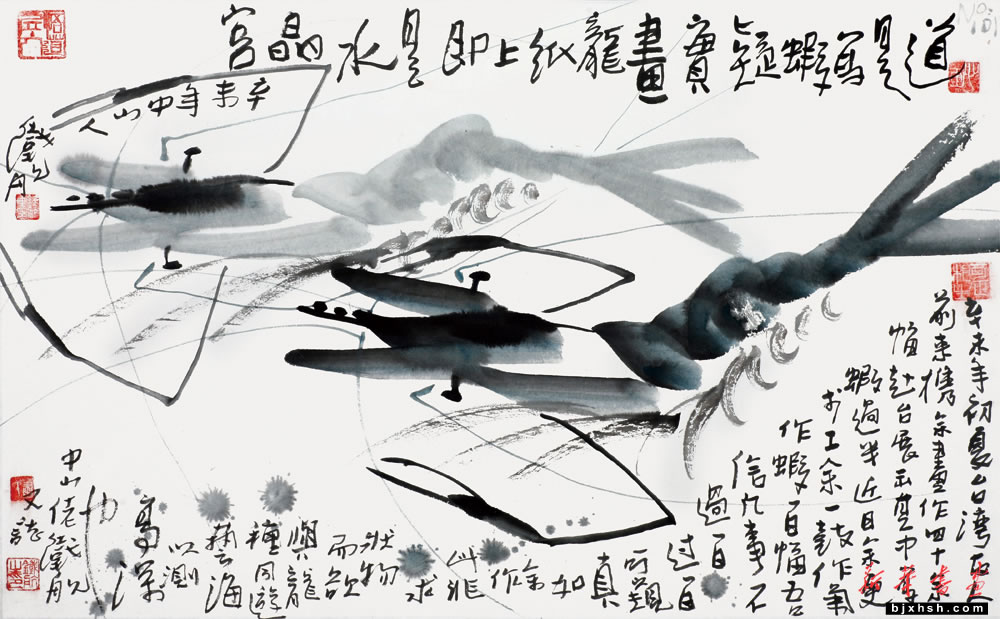 道是写蝦疑實畫龍紙上即是水晶宮
辛未年中山人
辛未年初夏台湾友
前来携余畫作四十余
幅赴台展出其中
蝦過半近日余更
于工余一鼓作氣
作蝦百幅吾
信凡事不
過百
过百
可觀
真
如
余
作
此非
求
状物
而欲
與龍
種同遊
藝海
以測
高深
也
中山佬
又誌
bjxhsh.com